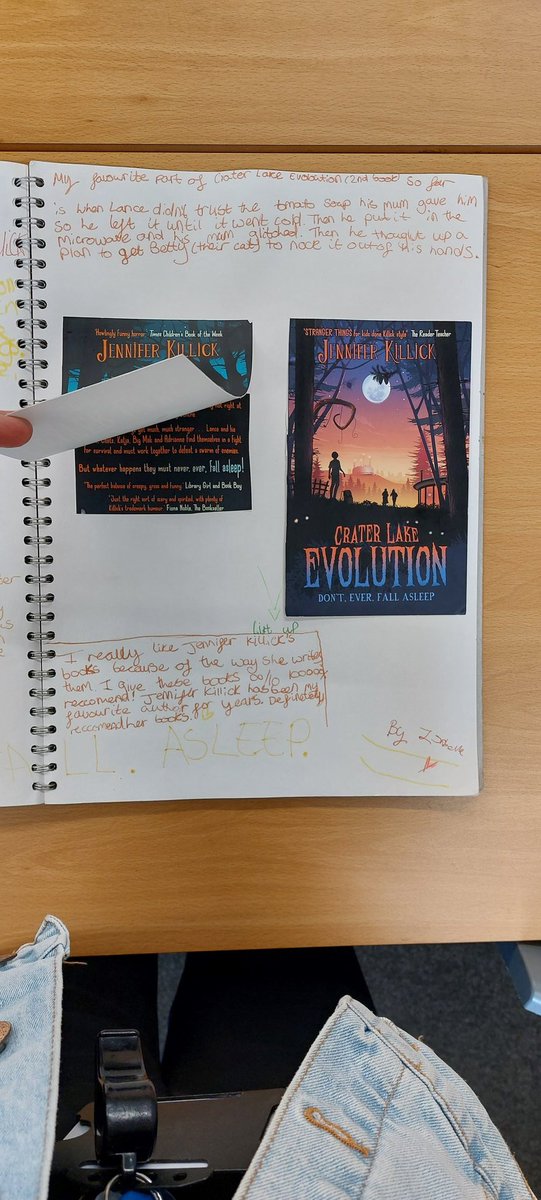 My favourite part of Crater Lake Evolution (2nd book) so far
is when Lance didn't trust the tomato soup his mum gave him
so he left it until it went cold. Then he put it in the
microwave and his mum glitched. Then he thought up a
plan to get Betty (their cat) to nock it out of his hands.
'Howlingly funny horror' Times Children's Book of the Week
JENNIFER KILLICK
right at
much, much stranger ... Lance and he
Chets, Katja, Big Mak and Adrianne find themselves in a fight
for survival and must work together to defeat a swarm of enemies.
But whatever happens they must never, ever, fall asleep!
'The perfect balance of creepy, gross and funny' Library Girl and Book Boy
'Just the right sort of scary and spirited, with plenty of
Killick's trademark humour' Fiona Noble, The Bookseller
'STRANGER THINGS for kids done Killick style' The Reader Teacher
JENNIFER KILLICK
CRATER LAKE
EVOLUTION
DON'T. EVER. FALL ASLEEP
Lift up
I really like Jennifer Killick's
books because of the way she writes
them. I give these books
reccomend! Jennifer Killick has been my
favourite author for years. Definetely
reccomend her books.
LL. ASLEEP.
By